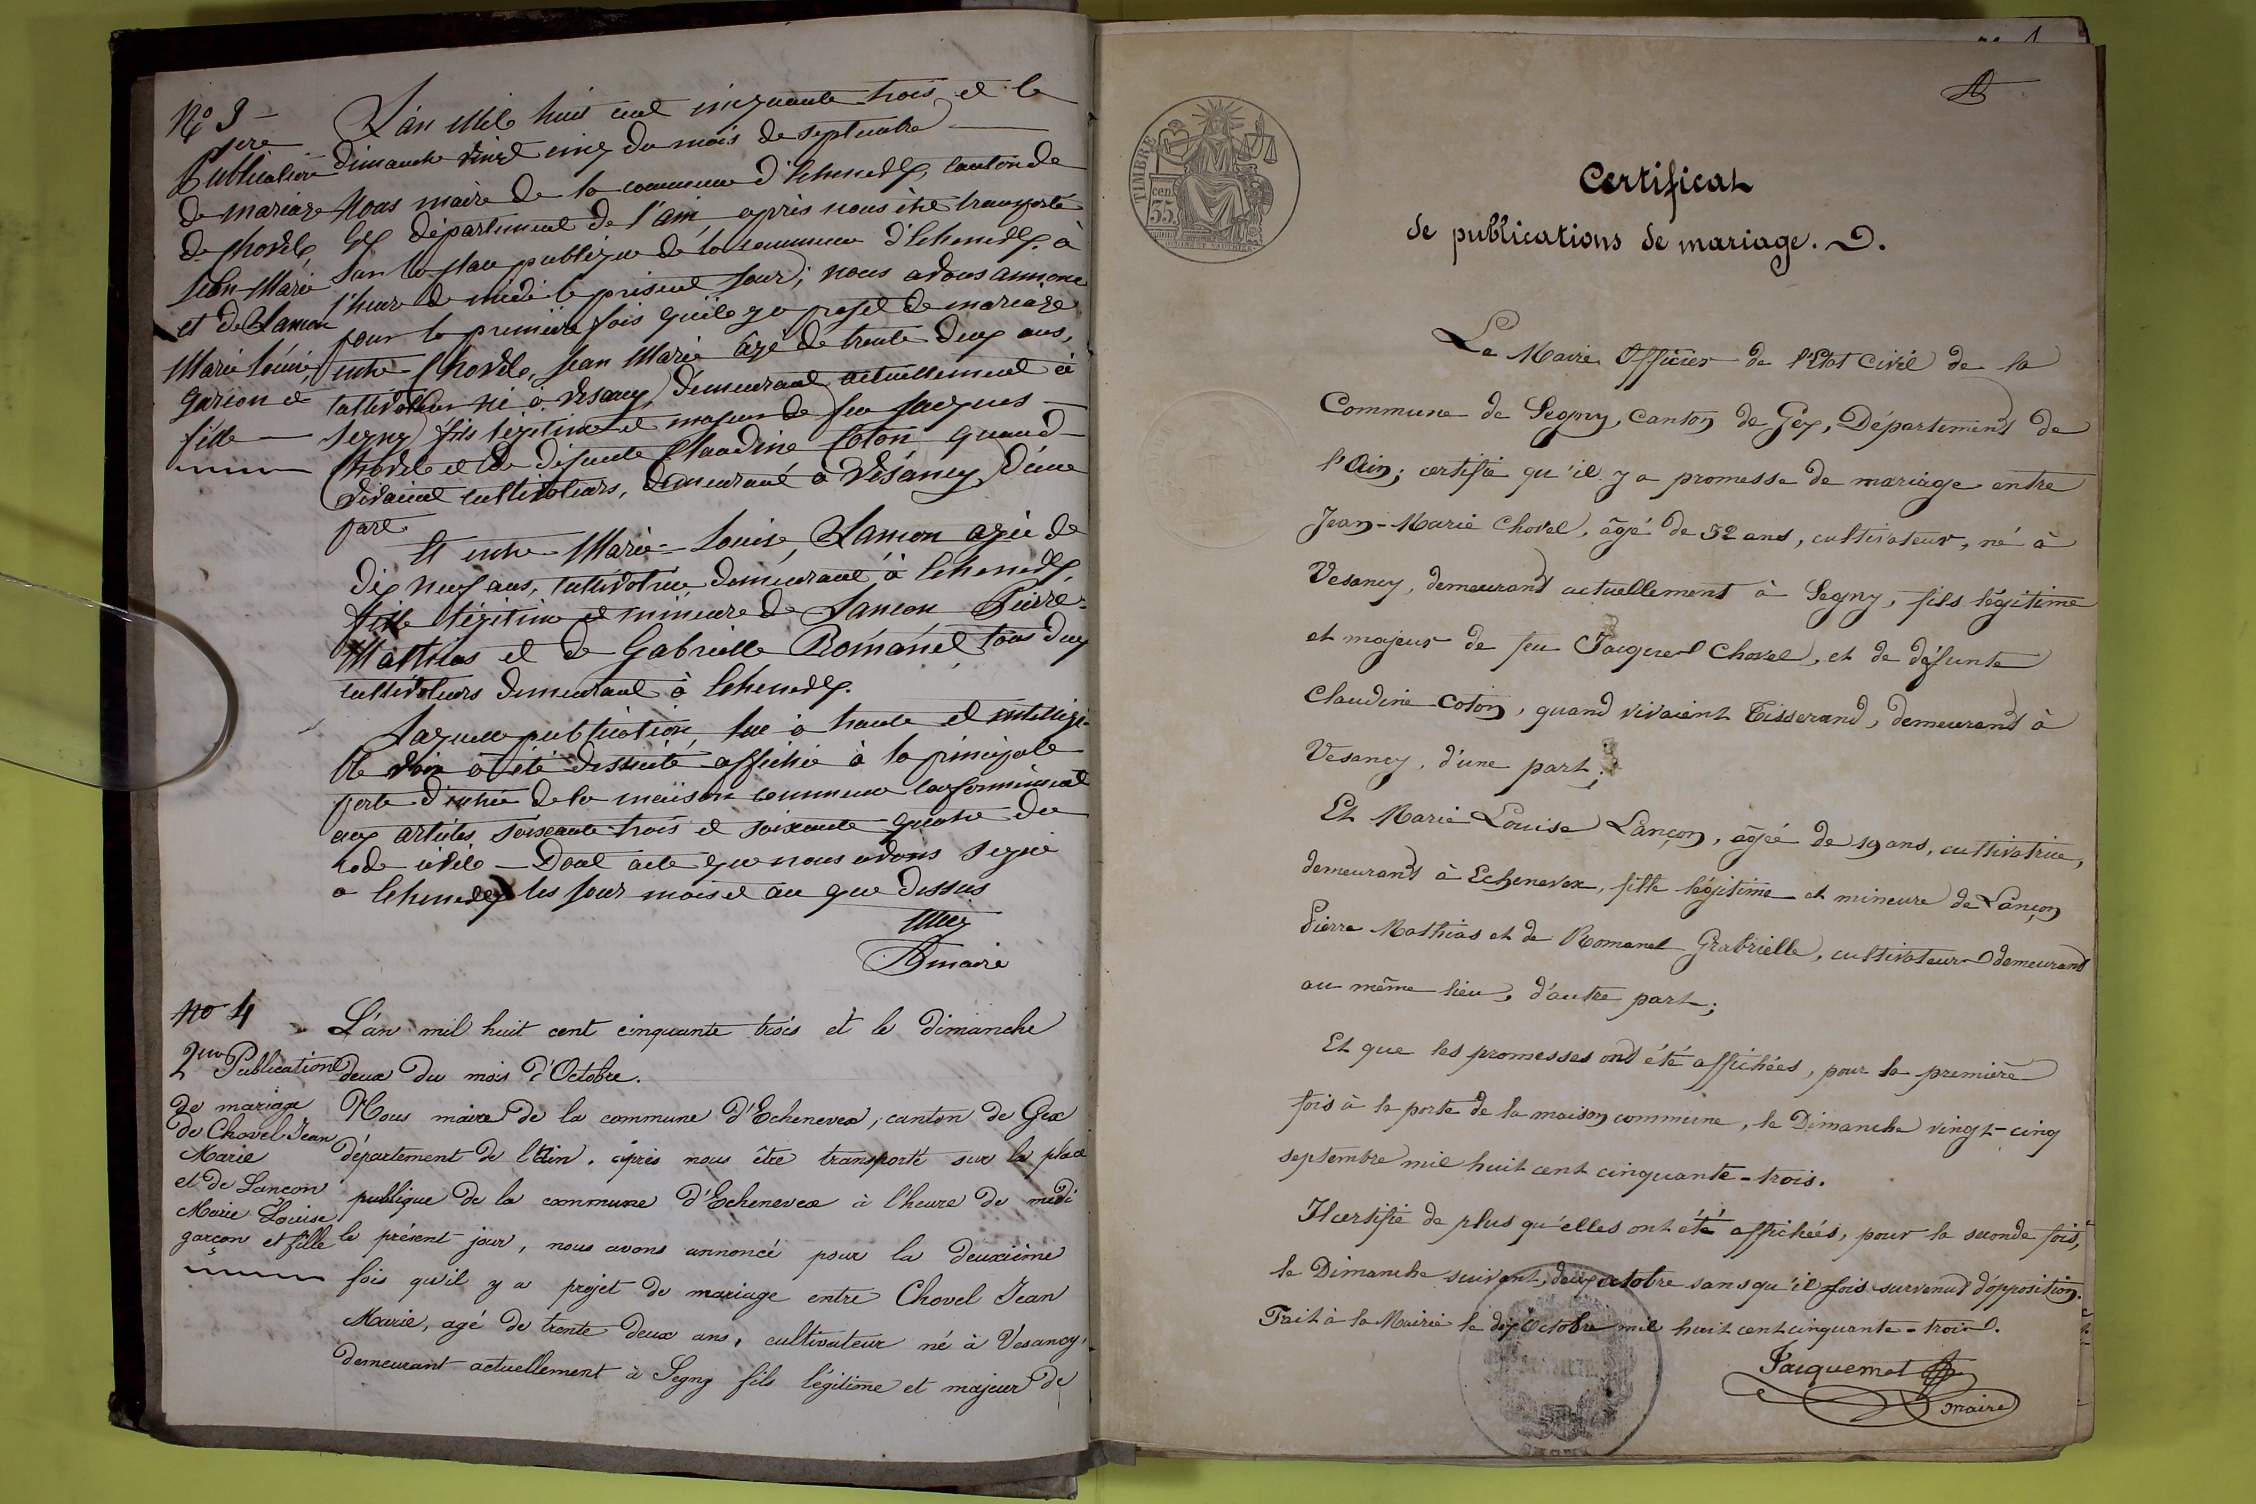 No 3
1ere
Publication
de mariage
de Chovel,
Jean-Marie
et de Lancon
Marie Louise,
garçon et
fille
L'an mil huit cent cinquante trois et le
dimanche vingt cinq du mois de septembre
Nous maire de la commune d'Echenevex, canton de
Gex département de l'ain, après nous être transporté
sur la place publique de la commune d'Echenevex à
l'heure de midi le présent jour; nous avons annoncé
pour la première fois qu'il y a projet de mariage
entre Chovel, Jean Marie âgé de trente deux ans,
cultivateur né à Vesancy, demeurant actuellement à
Segny fils légitime et majeur de feu Jacques
Chovel et de défunte Claudine Coton quand
vivaient cultivateurs, demeurant à Vésancy, d'une
part
Et entre Marie-Louise, Lancon agée de
dix neuf ans, cultivatrice demeurant à Echenevex,
fille légitime et mineure de Lancon Pierre-
Mathias et de Gabrielle Romanel tous deux
cultivateurs demeurant à Echenevex.
Laquelle publication, lue à haute et intelligi-
ble voix a été desuite affichée à la principale
porte d'entrée de la maison commune conformément
aux articles soixante trois et soixante quatre du
code civil - Dont acte que nous avons signé
a Echenevex les jour mois et an que dessus
maire
no 4
2me Publication
de mariage
de Chovel Jean
Marie
et de Lançon
Marie Louise
garçon et fille
L'an mil huit cent cinquante trois et le dimanche
deux du mois d'Octobre.
Nous maire de la commune d'Echenevex, canton de Gex
département de l'Ain. après nous être transporté sur la place
publique de la commune d'Echenevex à l'heure de midi
le présent jour, nous avons annoncé pour la deuxième
fois qu'il y a projet de mariage entre Chovel Jean
Marie, agé de trente deux ans, cultivateur né à Vesancy,
demeurant actuellement à Segny fils légitime et majeur de
TIMBRE
cen.
35.
Certificat
de publications de mariage.
Le Maire Officier de l'Etat Civil de la
Commune de Segny, Canton de Gex, Département de
l'Ain; certifie qu'il y a promesse de mariage entre
Jean-Marie Chovel, âgé de 32 ans, cultivateur, né à
Vesancy, demeurant actuellement à Segny, fils légitime
et majeur de feu Jacques Chovel, et de défunte
Claudine Coton, quand vivaient Tisserand, demeurant à
Vesancy, d'une part;
Et Marie Louise Lançon, âgée de 19 ans, cultivatrice,
demeurant à Echenevex, fille légitime et mineure de Lançon
Pierre Mathias et de Romanel Grabrielle, cultivateurs demeurant
au même lieu, d'autre part;
Et que les promesses ont été affichées, pour la première
fois à la porte de la maison commune, le Dimanche vingt-cinq
septembre mil huit cent cinquante-trois.
Il certifie de plus qu'elles ont été affichées, pour la seconde fois,
le Dimanche suivant, deux octobre sans qu'il soit survenu d'opposition.
Fait à la Mairie le dix Octobre mil huit cent cinquante-trois.
Jacquemet
maire